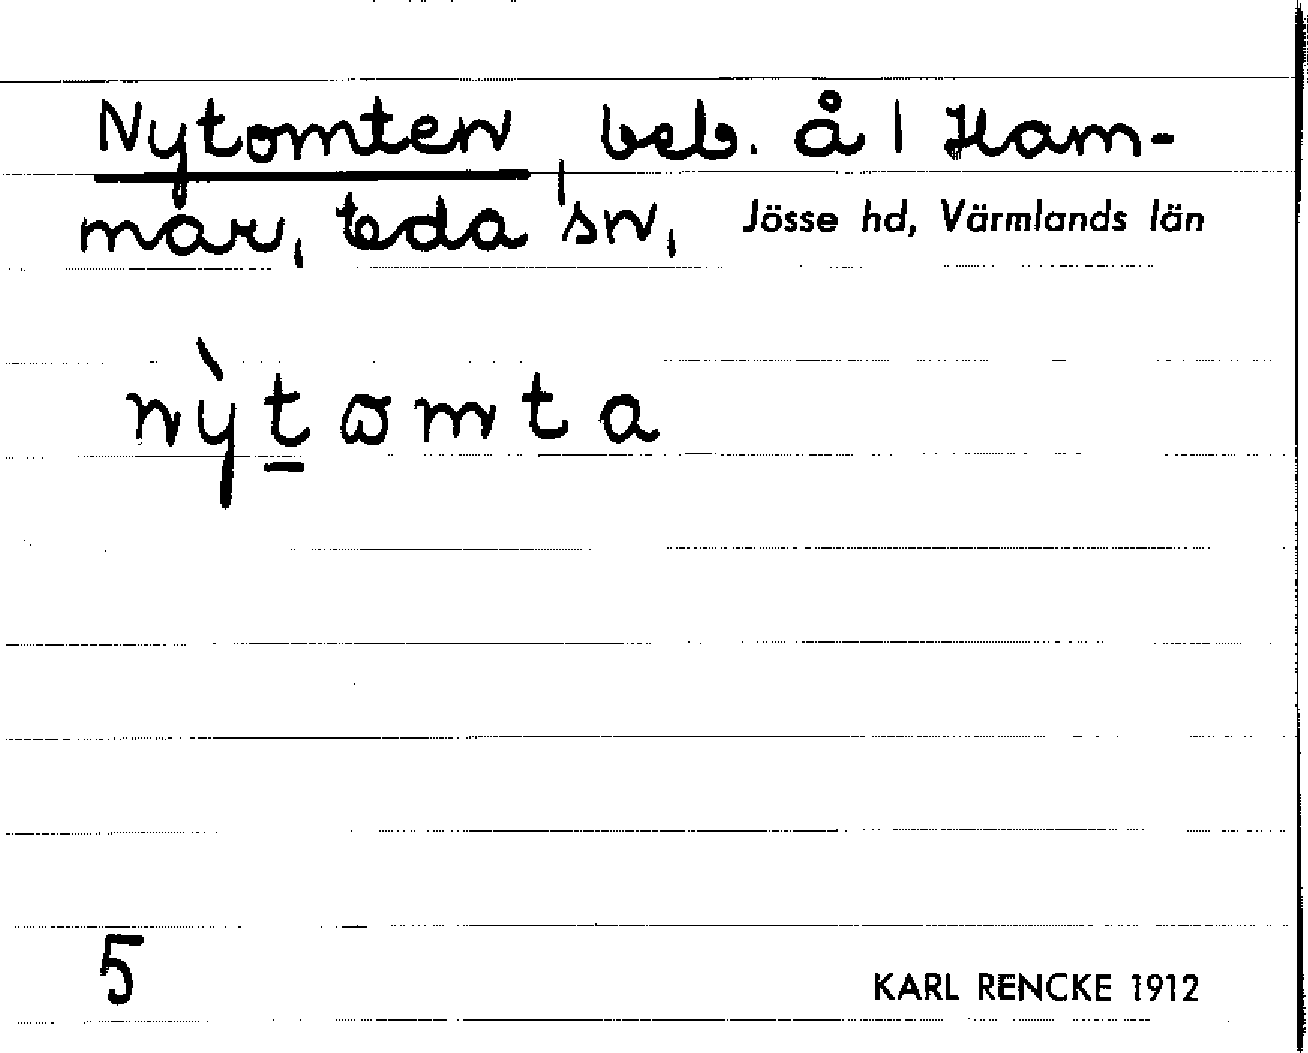 Nytomten, beb. å 1 Ham-
mar, Eda sn, Jösse hd, Värmlands län
nỳt̠ɷmta
5
KARL RENCKE 1912